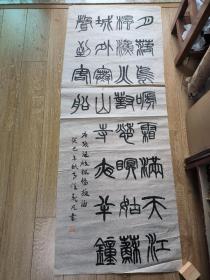 月落烏啼霜滿天江
楓漁火對愁眠姑蘇
城外寒山寺夜半鐘
聲到客船
張繼楓橋夜泊
癸巳年書